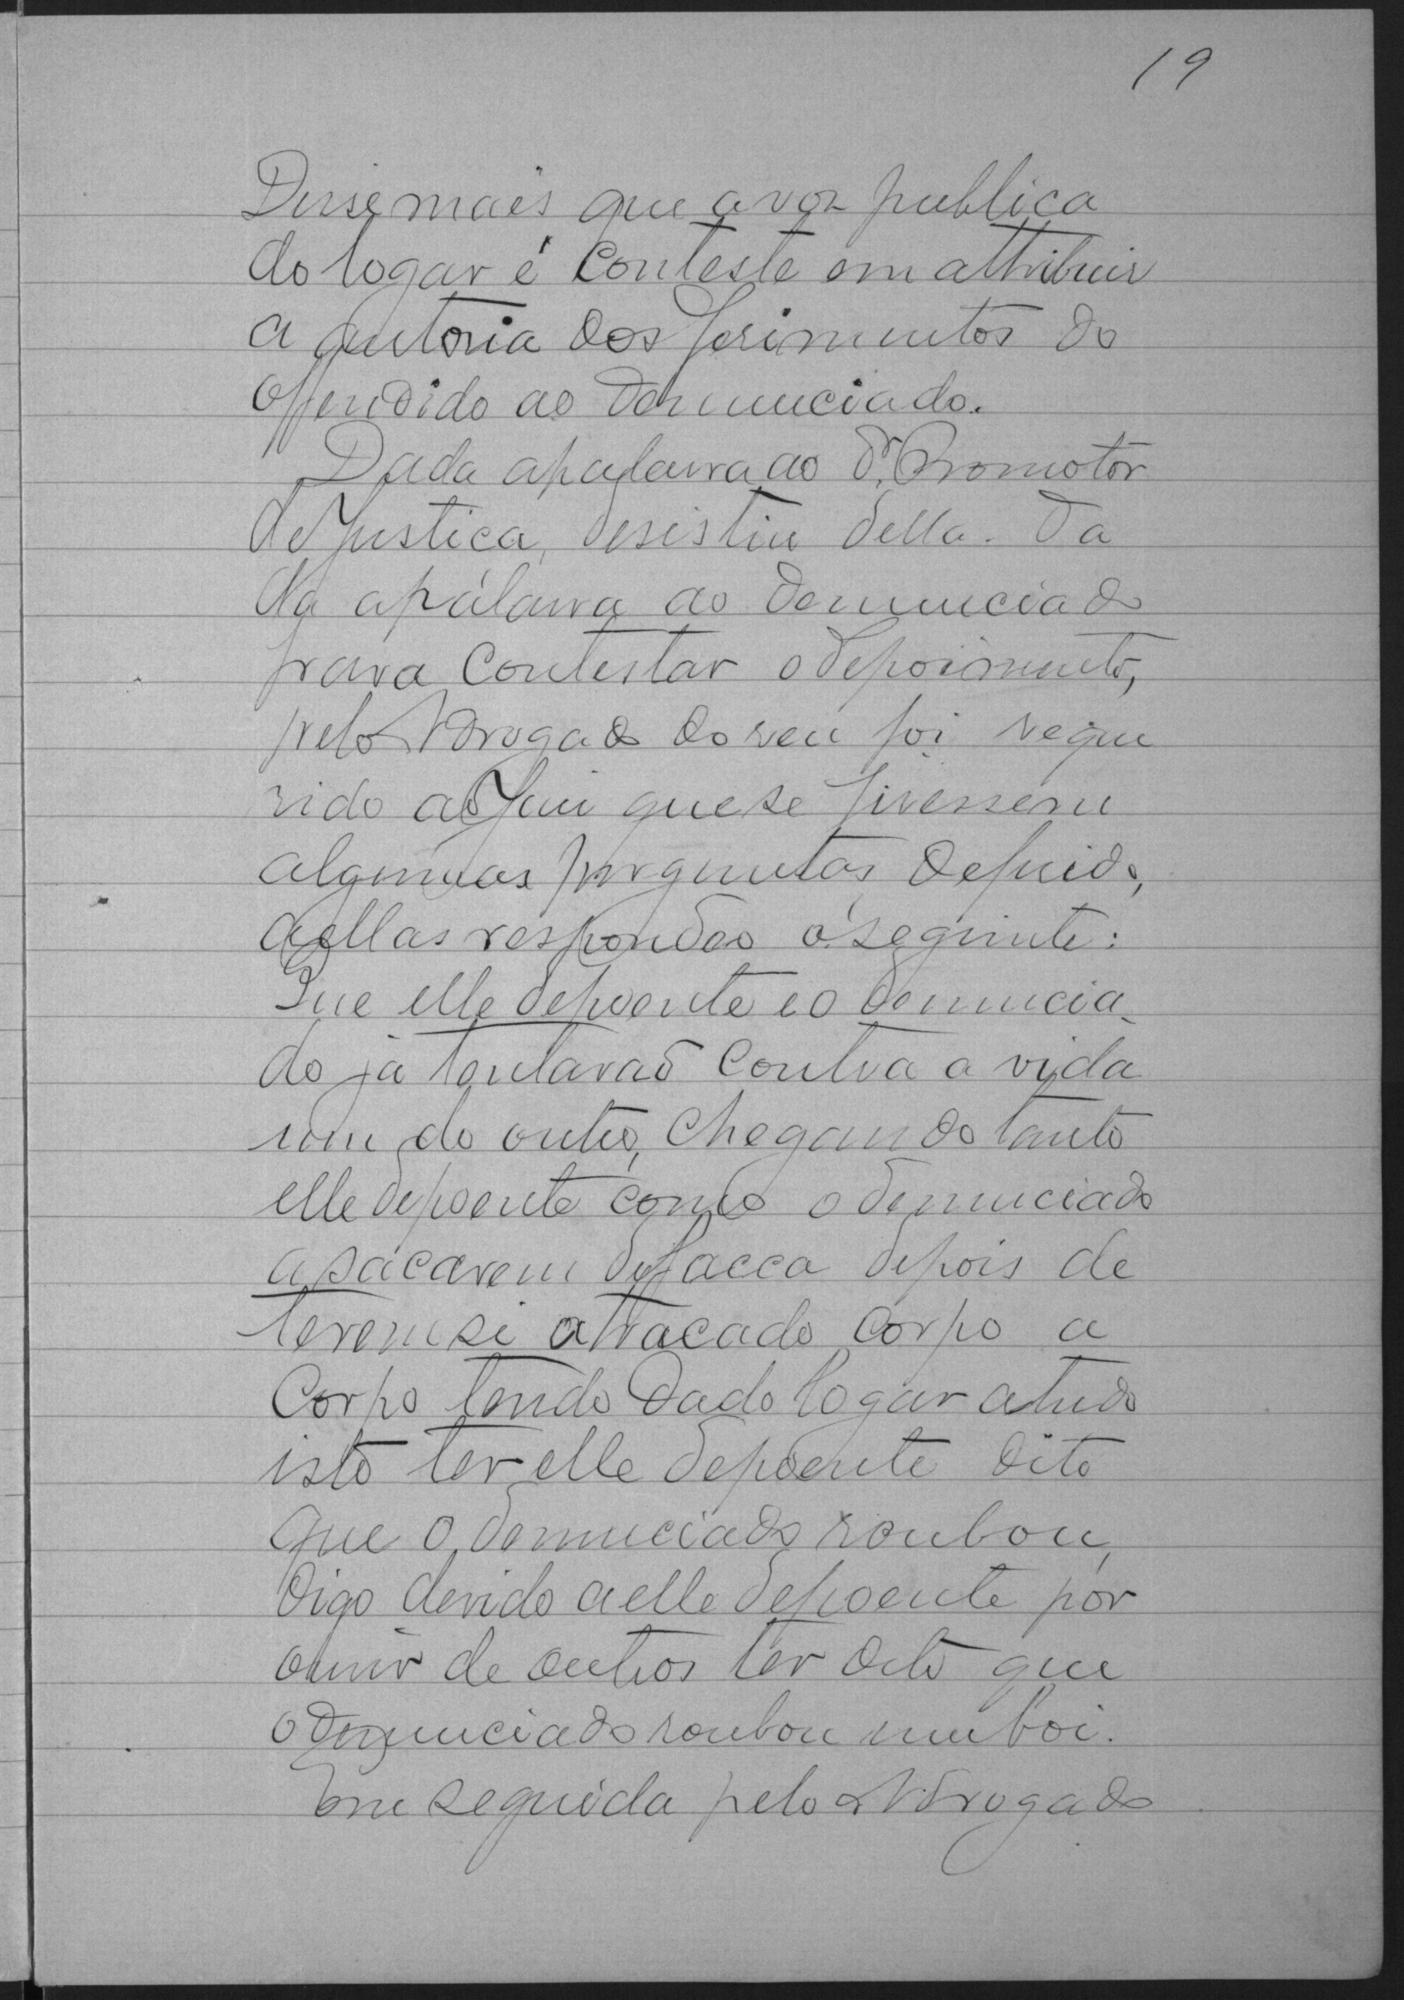 19
Disse mais que a voz publica
do logar é conteste em attribuir
a autoria dos ferimentos do
offendido ao denunciado.
Dada a palavra ao Dr. Promotor
de Justica, desistiu della. Da
da a palavra ao denunciado
para contestar o depoimento,
pelo Advogado do reu foi reque
rido ao Juiz que se fizessem
algumas perguntas
a ellas respondeo o seguinte:
Que elle depoente e o denuncia-
do já tentarão contra a vida
um do outro, chegando tanto
elle depoente como o denunciado
a sacarem de facca depois de
terem si atracado corpo a
corpo tendo dado logar a tudo
isto ter elle depoente dito
que o denunciado roubou,
digo devido a elle depoente por
ouvir de outros ter dito que
o denunciado roubou um boi.
Em seguida pelo Advogado